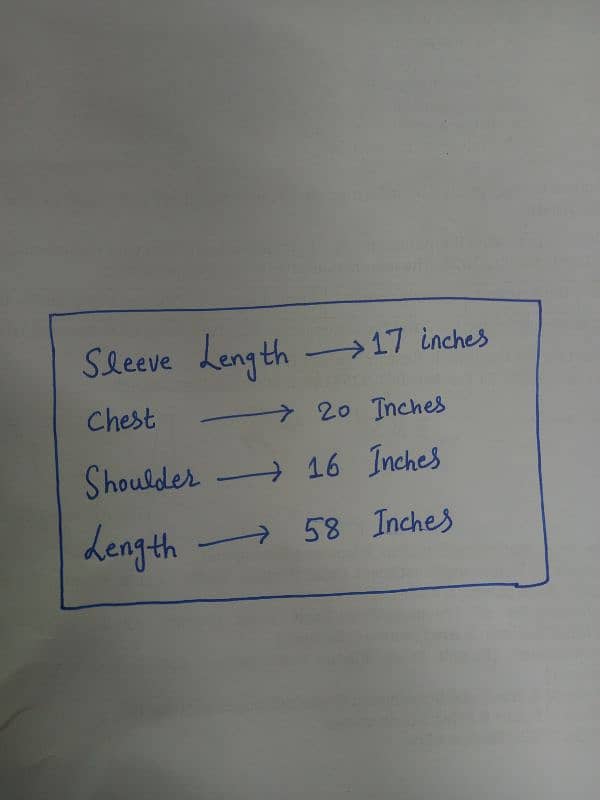 Sleeve Length → 17 inches
Chest → 20 Inches
Shoulder → 16 Inches
Length → 58 Inches